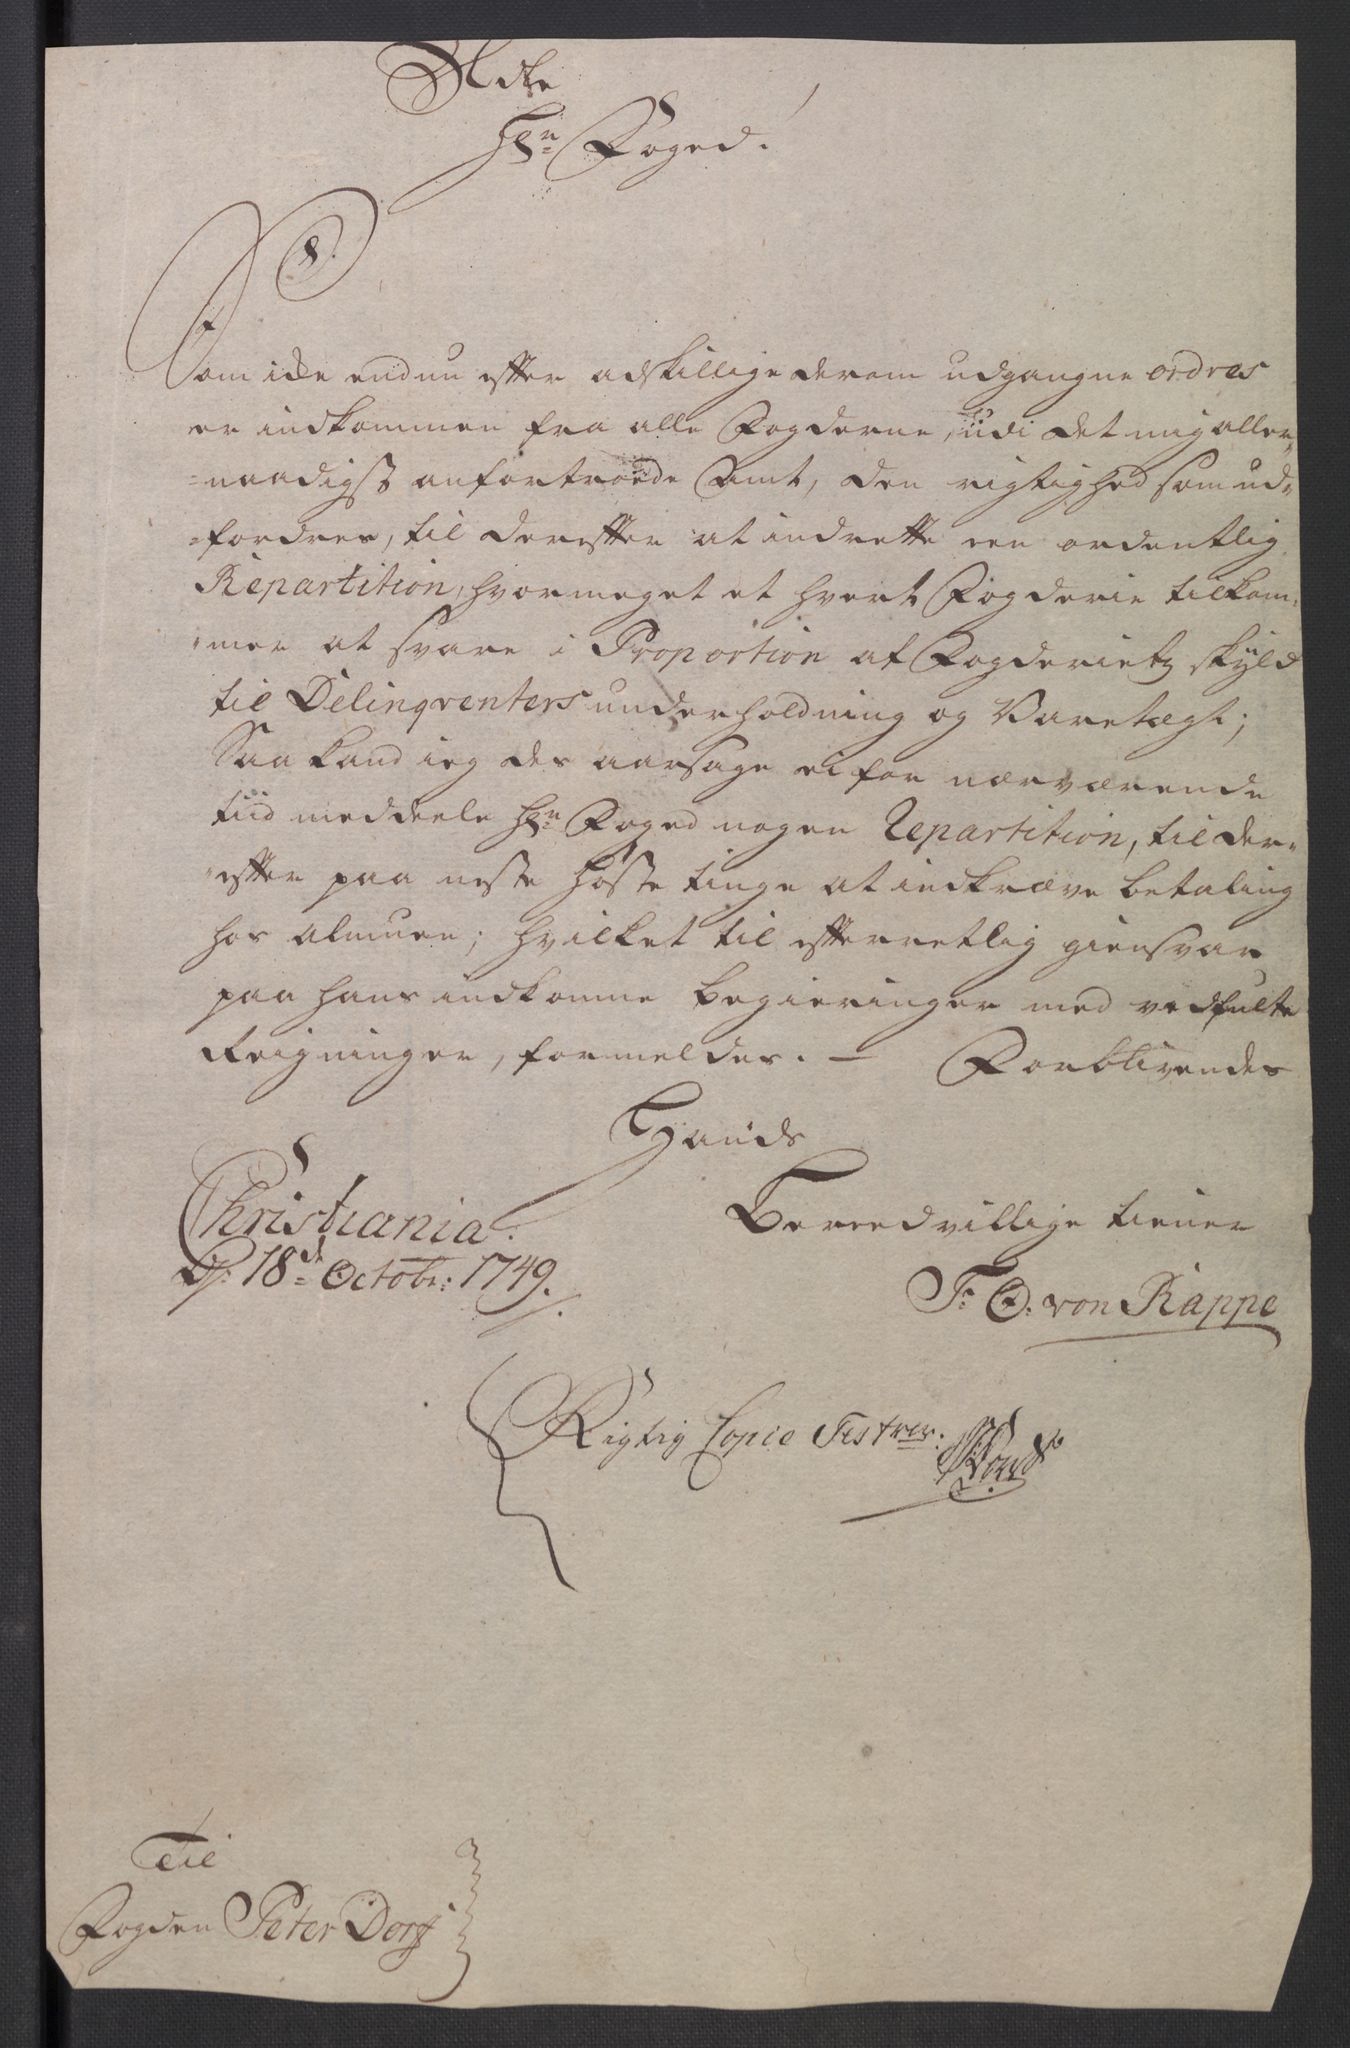 Ædle
Hr. Foged!
Som icke endnu efter adskillige derom udgangne ordres
er indkommen fra alle Fogderne, udi det mig aller-
naadigst anfortroede Amt, den rigtighed som ud-
fordres, til derefter at indrette een ordentlig
Repartition, hvormeget et hvert Fogderie tilkom-
mer at svare i Proportion af Fogderietz skyld
til Delinqventers underholdning og Varetægt;
Saa kand ieg des aarsage ei for nærværende
tiid meddeele Hr. Foged nogen Repartition, til der-
efter paa neste høste tinge at indkræve betaling
hos almuen; hvilket til efterretlig giensvar
paa hans indkomne begieringer med vedfulte
Reigninger, formeldes. — Forblivendes
Hands
Christiania
d. 18de Octobr: 1749.
Bereedvillige tiener
F: O: von Rappe
Rigtig Copie Testerer.
Til
Fogden Peter Dorf